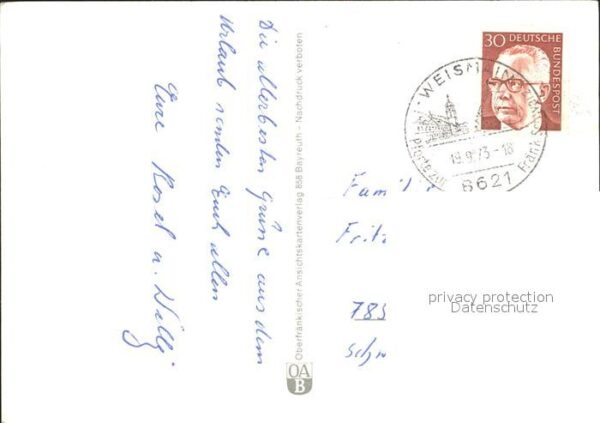 Die allerbesten Grüße aus dem
Urlaub senden Euch allen
Eure Rosel u. Willy
Oberfränkischer Ansichtskartenverlag 858 Bayreuth - Nachdruck verboten
OA
B
30 DEUTSCHE
BUNDESPOST
WEISMAIN
19.9.73-18
8621
Pforte zur Fränk
Famili
Fritz
785
Schw
privacy protection
Datenschutz